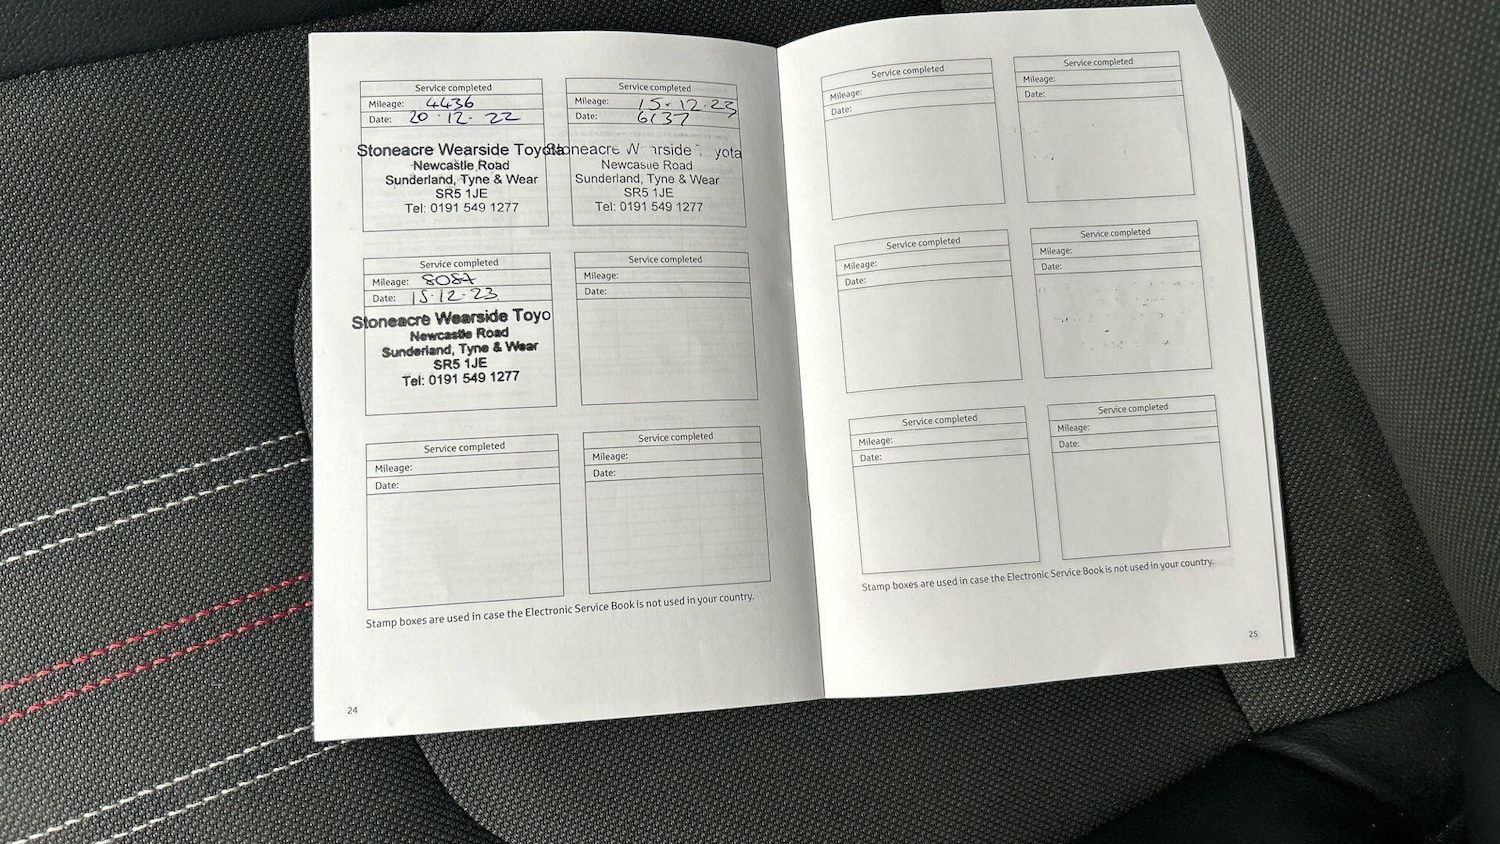 Service completed
Mileage: 4436
Date: 20·12·22
Stoneacre Wearside Toyota
Newcastle Road
Sunderland, Tyne & Wear
SR5 1JE
Tel: 0191 549 1277
Service completed
Mileage: 15·12·23
Date: 6137
Stoneacre W arside Toyota
Newcastle Road
Sunderland, Tyne & Wear
SR5 1JE
Tel: 0191 549 1277
Service completed
Mileage: 8087
Date: 15·12·23
Stoneacre Wearside Toyo
Newcastle Road
Sunderland, Tyne & Wear
SR5 1JE
Tel: 0191 549 1277
Service completed
Mileage:
Date:
Service completed
Mileage:
Date:
Service completed
Mileage:
Date:
Stamp boxes are used in case the Electronic Service Book is not used in your country.
24
Service completed
Mileage:
Date:
Service completed
Mileage:
Date:
Service completed
Mileage:
Date:
Service completed
Mileage:
Date:
Service completed
Mileage:
Date:
Service completed
Mileage:
Date:
Stamp boxes are used in case the Electronic Service Book is not used in your country.
25